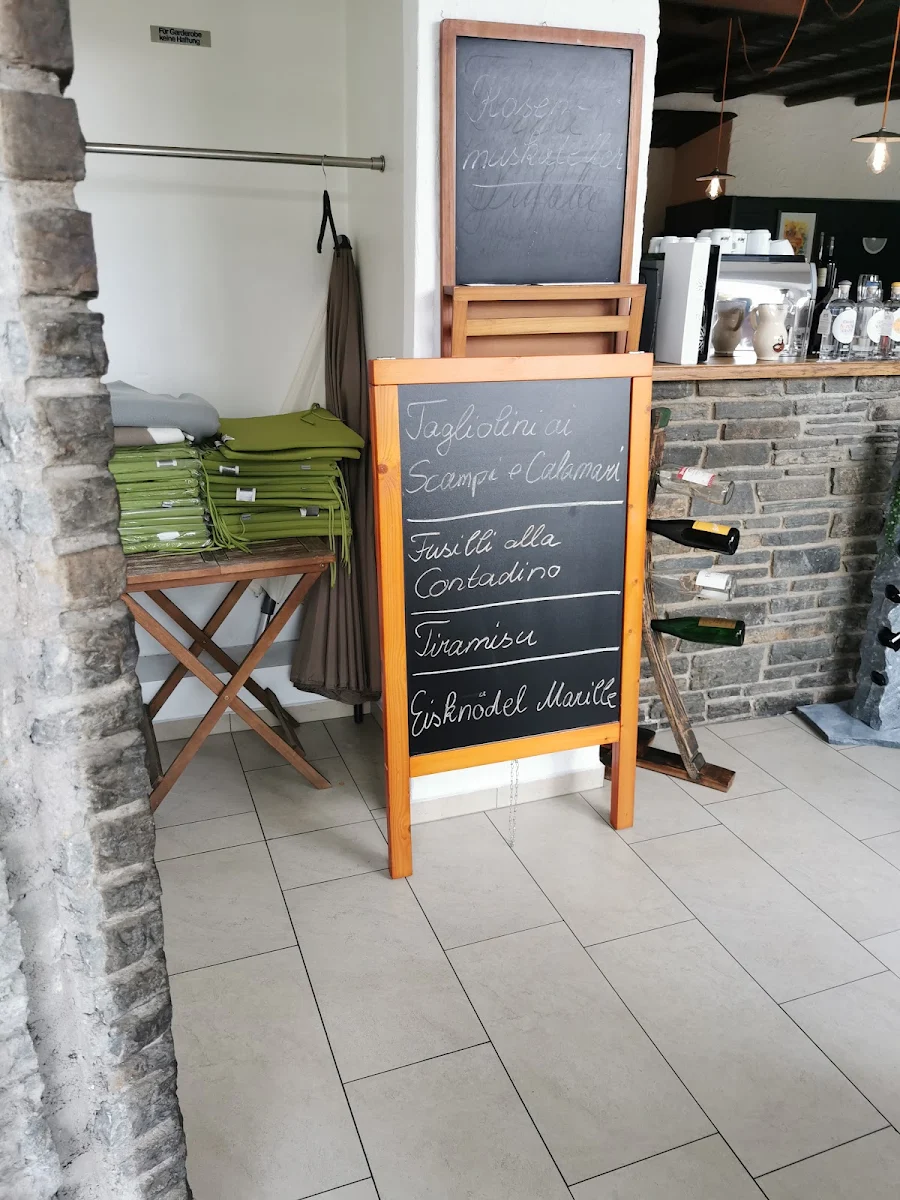 Für Garderobe
keine Haftung
Rosen-
muskateller
Tagliolini ai
Scampi e Calamari
Fusilli alla
Contadino
Tiramisu
Eisknödel Marille